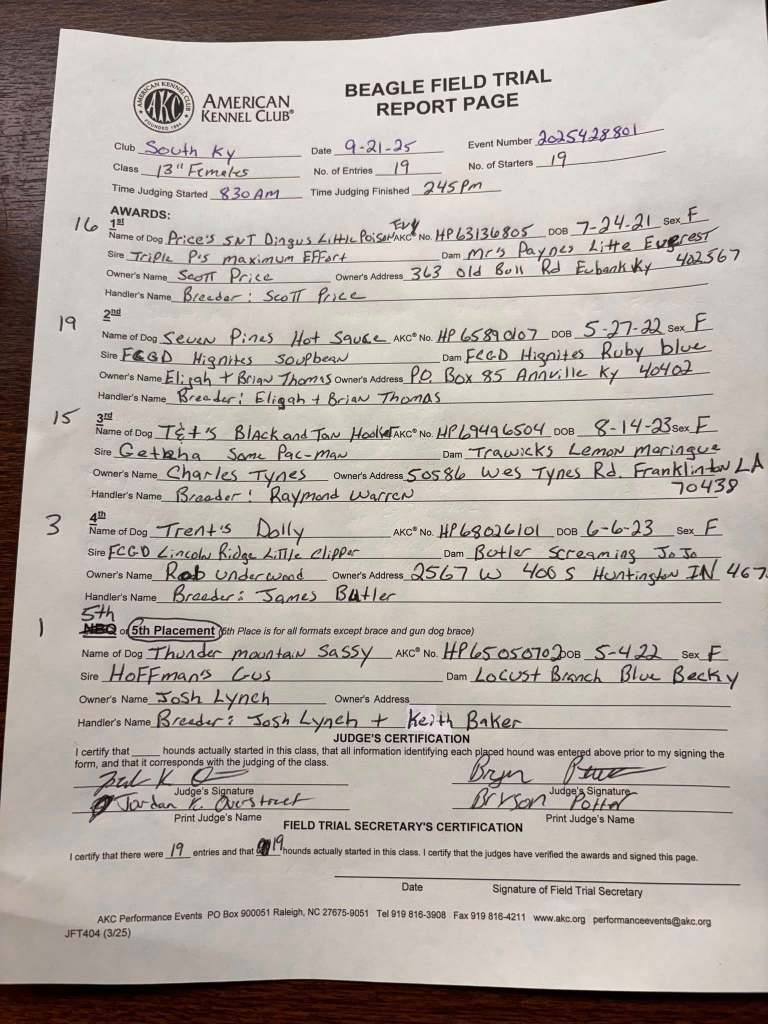 AMERICAN KENNEL CLUB
FOUNDED 1884
AKC
AMERICAN
KENNEL CLUB®
BEAGLE FIELD TRIAL
REPORT PAGE
Club South Ky Date 9-21-25 Event Number 2025428801
Class 13" Females No. of Entries 19 No. of Starters 19
Time Judging Started 830 AM Time Judging Finished 245 Pm
AWARDS:
16 1st
Name of Dog Price's SNT Dingus Little Poison Evy AKC® No. HP63136805 DOB 7-24-21 Sex F
Sire Triple P's maximum Effort Dam Mr's Paynes Litte Everest
Owner's Name Scott Price Owner's Address 363 Old Bull Rd Eubank Ky 402567
Handler's Name Breeder: Scott Price
19 2nd
Name of Dog Seven Pines Hot Sauce AKC® No. HP65890107 DOB 5-27-22 Sex F
Sire FCGD Hignites Soupbean Dam FCGD Hignites Ruby blue
Owner's Name Elijah + Brian Thomas Owner's Address P.O. Box 85 Annville Ky 40402
Handler's Name Breeder: Elijah + Brian Thomas
15 3rd
Name of Dog T&t's Black and Tan Hooker AKC® No. HP69496504 DOB 8-14-23 Sex F
Sire Some Pac-man Dam Trawicks Lemon Maringue
Owner's Name Charles Tynes Owner's Address 50586 Wes Tynes Rd. Franklinton LA
70438
Handler's Name Breeder: Raymond Warren
3 4th
Name of Dog Trent's Dolly AKC® No. HP68026101 DOB 6-6-23 Sex F
Sire FCGD Lincoln Ridge Little Clipper Dam Butler Screaming JoJo
Owner's Name Rob underwood Owner's Address 2567 W 400 S Huntington IN 467
Handler's Name Breeder: James Butler
5th
1 NBQ or 5th Placement (5th Place is for all formats except brace and gun dog brace)
Name of Dog Thunder mountain Sassy AKC® No. HP65050702 DOB 5-4-22 Sex F
Sire Hoffman's Gus Dam Locust Branch Blue Becky
Owner's Name Josh Lynch Owner's Address
Handler's Name Breeder: Josh Lynch + Keith Baker
JUDGE'S CERTIFICATION
I certify that _____ hounds actually started in this class, that all information identifying each placed hound was entered above prior to my signing the
form, and that it corresponds with the judging of the class.
Judge's Signature Judge's Signature
Jordan K. Overstreet Bryson Potter
Print Judge's Name Print Judge's Name
FIELD TRIAL SECRETARY'S CERTIFICATION
I certify that there were 19 entries and that 19 hounds actually started in this class. I certify that the judges have verified the awards and signed this page.
Date Signature of Field Trial Secretary
AKC Performance Events PO Box 900051 Raleigh, NC 27675-9051 Tel 919 816-3908 Fax 919 816-4211 www.akc.org performanceevents@akc.org
JFT404 (3/25)